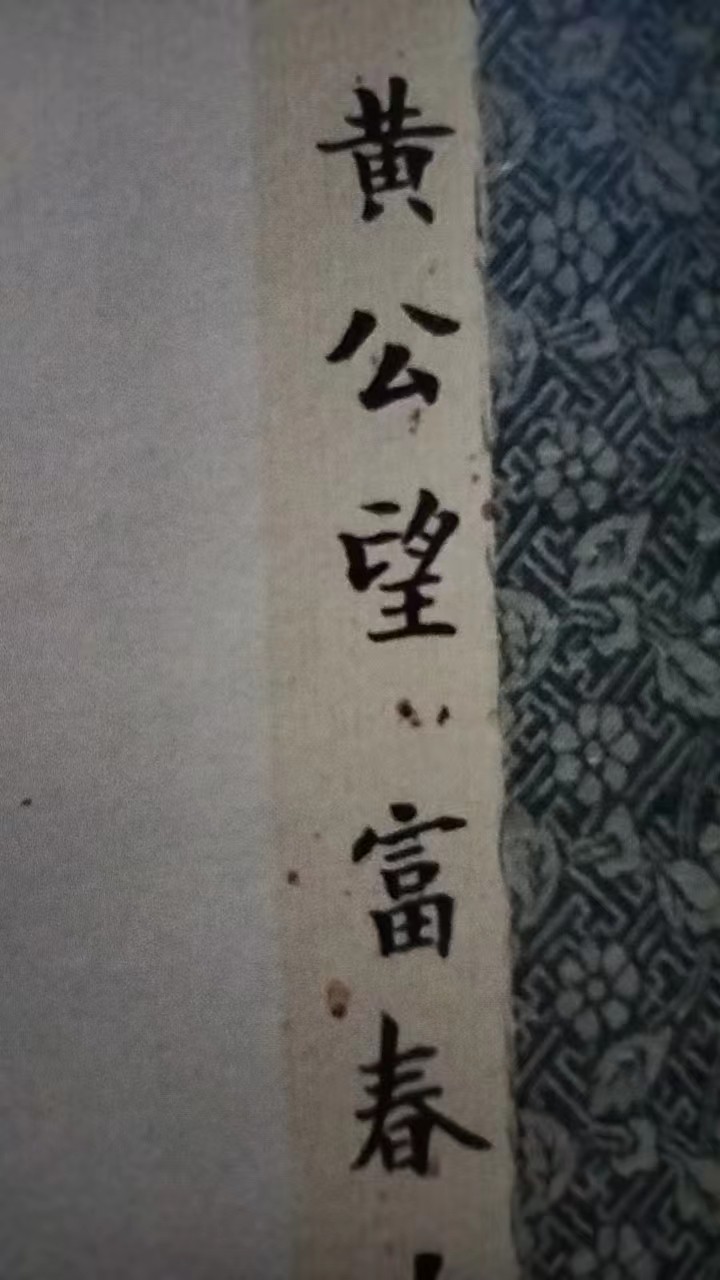 黄公望富春